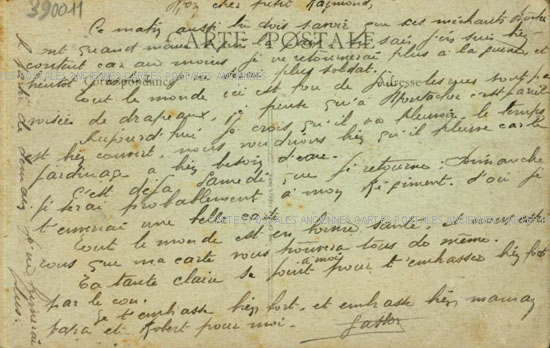 390011
Mon cher petit Raymond,
Ce matin aussi tu dois savoir que ces méchants Boches
ont quand même je suis bien
content car au moins je ne retournerai plus à la guerre et
bientôt je ne serai plus soldat.
CARTE POSTALE
Correspondance
Adresse
Tout le monde ici est fou de joie les rues sont pa-
voisées de drapeaux, je pense qu'à Montacher c'est pareil
Aujourd'hui je crois qu'il va pleuvoir, le temps
est bien couvert, nous voudrions bien qu'il pleuve car le
jardinage a bien besoin d'eau.
C'est déjà Samedi que je retourne, Dimanche
je serai probablement à mon Régiment. d'où je
t'enverrai une belle carte
CARTES POSTALES ANCIENNES CARTES POSTALES ANCIENNES
Tout le monde est en bonne santé, et nous
vous que ma carte vous trouvera tous de même.
Ta tante Claire se joint à moi pour t'embrasser bien fort
par le cou.
Je t'embrasse bien fort, et embrasse bien maman
papa et Robert pour moi.
Gaston
A partir de demain je ne
plus.